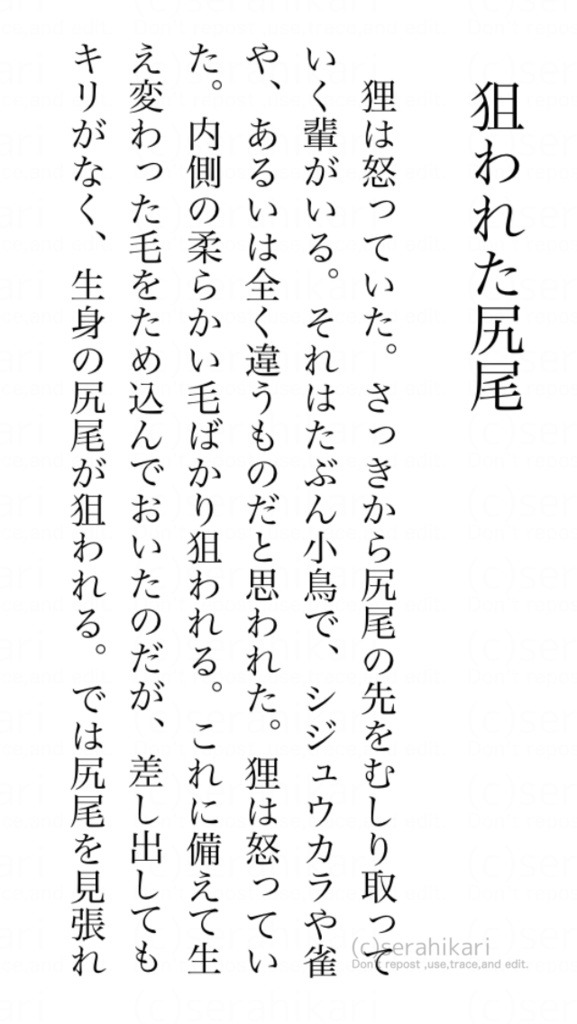 狙われた尻尾
狸は怒っていた。さっきから尻尾の先をむしり取って
いく輩がいる。それはたぶん小鳥で、シジュウカラや雀
や、あるいは全く違うものだと思われた。狸は怒ってい
た。内側の柔らかい毛ばかり狙われる。これに備えて生
え変わった毛をため込んでおいたのだが、差し出しても
キリがなく、生身の尻尾が狙われる。では尻尾を見張れ
(c)serahikari
Don't repost ,use,trace,and edit.